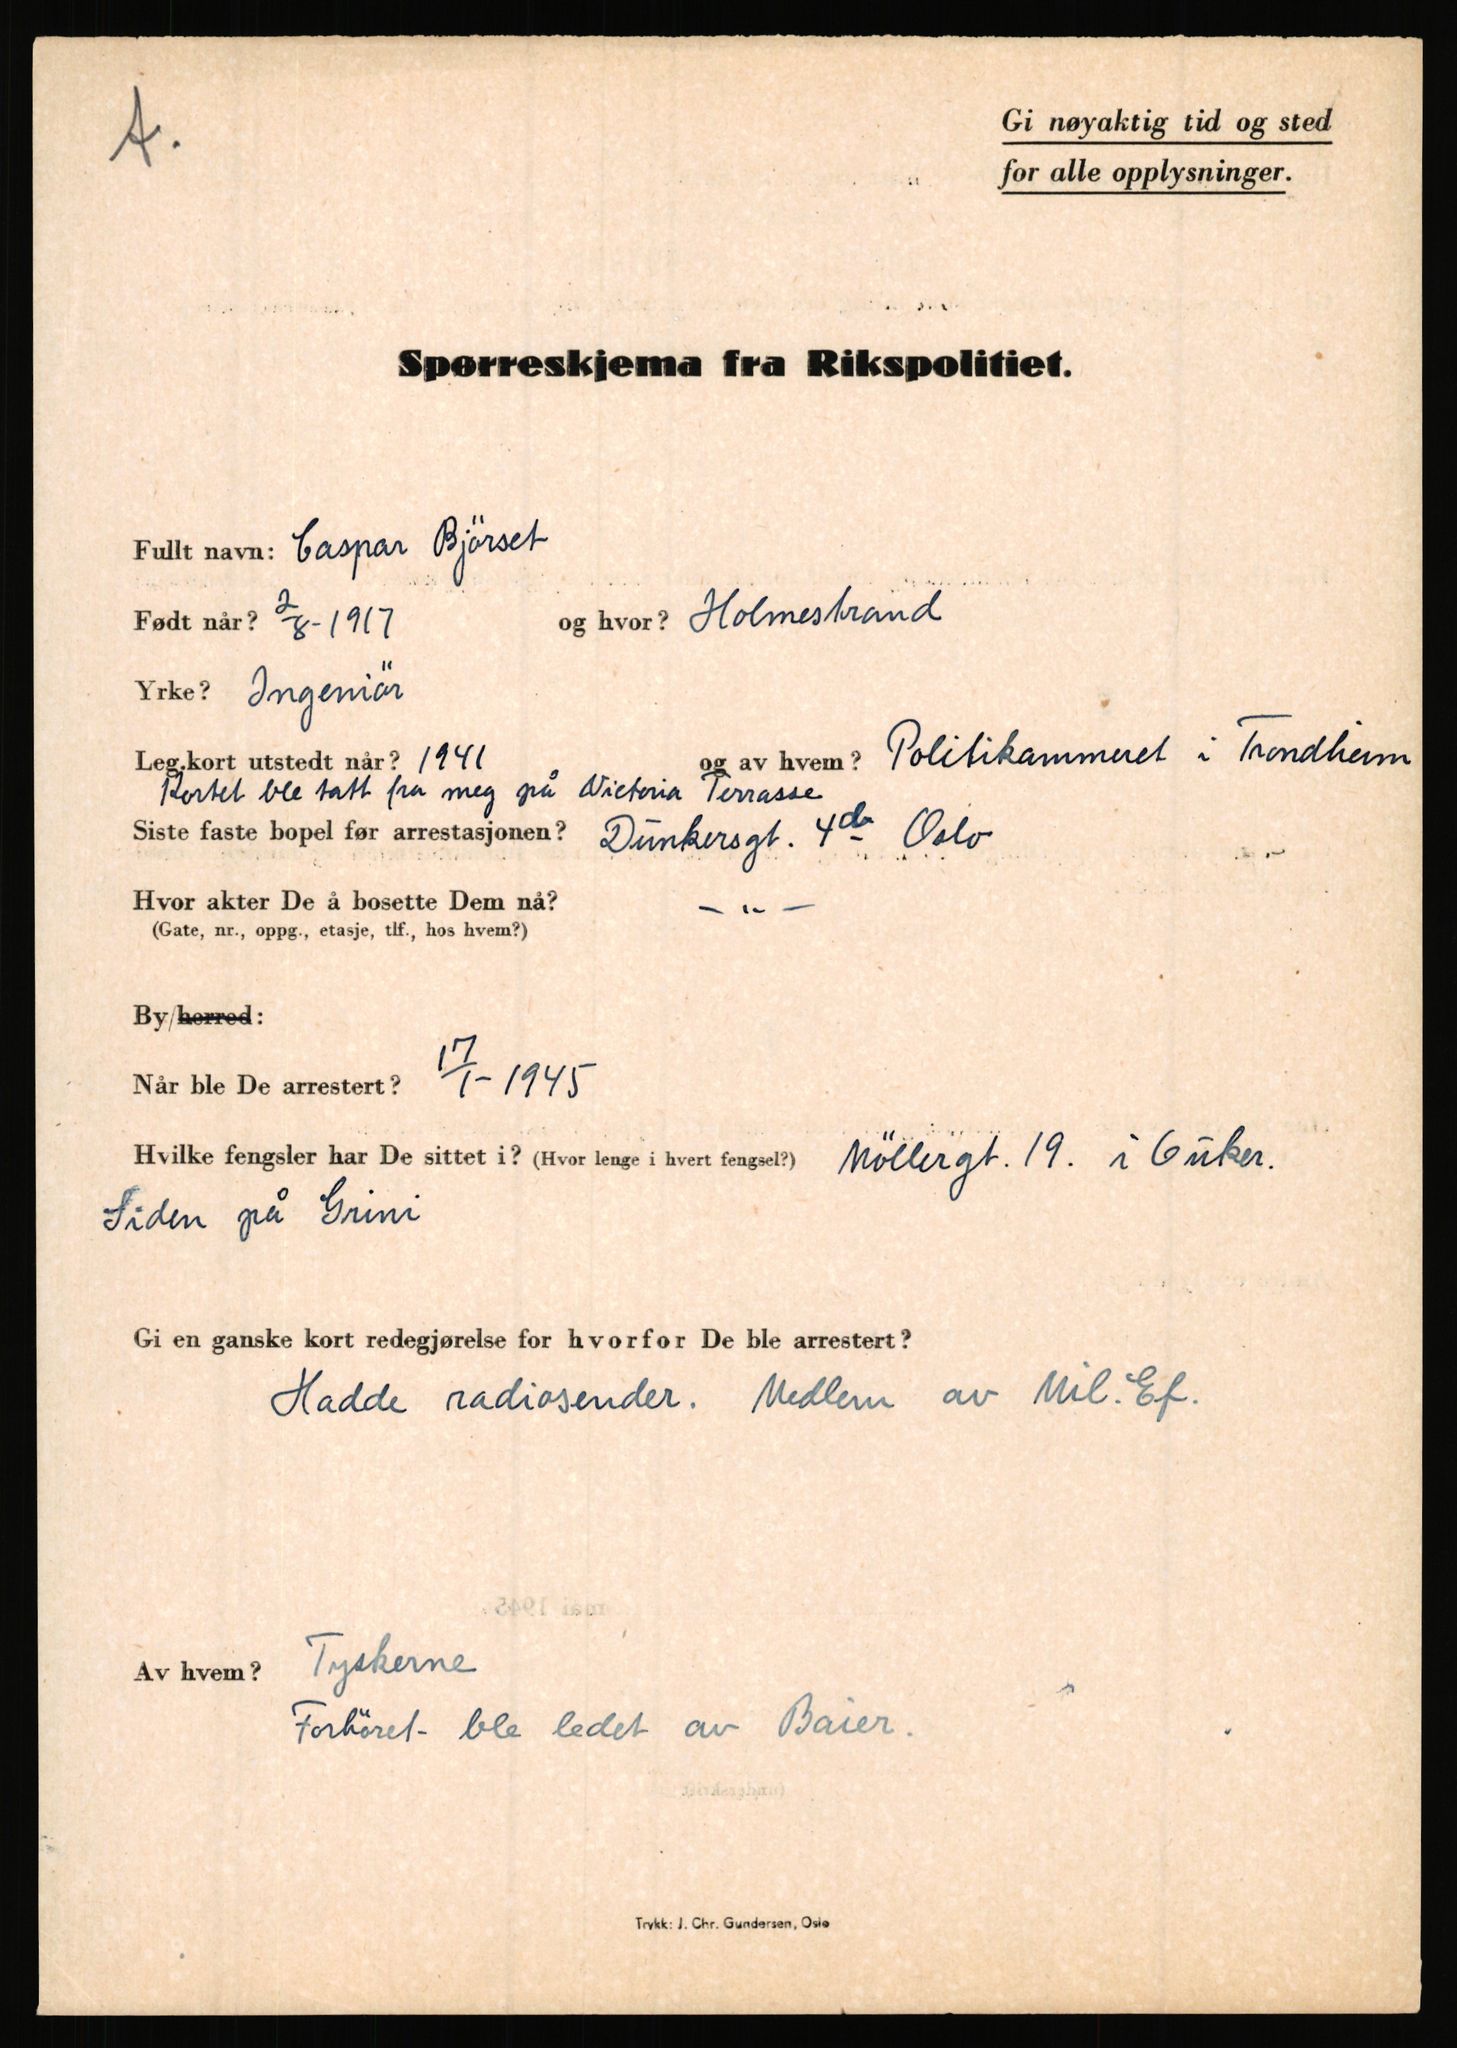 A.
Gi nøyaktig tid og sted
for alle opplysninger.
Spørreskjema fra Rikspolitiet.
Fullt navn: Caspar Björset
Født når? 2/8-1917 og hvor? Holmestrand
Yrke? Ingeniör
Leg.kort utstedt når? 1941 og av hvem? Politikammeret i Trondheim
Kortet ble tatt fra meg på Victoria Terrasse
Siste faste bopel før arrestasjonen? Dunkersgt. 4 Oslo
Hvor akter De å bosette Dem nå? — " —
(Gate, nr., oppg., etasje, tlf., hos hvem?)
By/herred:
Når ble De arrestert? 17/1-1945
Hvilke fengsler har De sittet i? (Hvor lenge i hvert fengsel?) Möllergt. 19. i 6 uker.
Siden på Grini
Gi en ganske kort redegjørelse for hvorfor De ble arrestert?
Hadde radiosender. Medlem av Mil. Ef.
mai 1945.
Av hvem? Tyskerne
Forhöret ble ledet av Baier.
(underskrift)
Trykk: J. Chr. Gundersen, Oslo